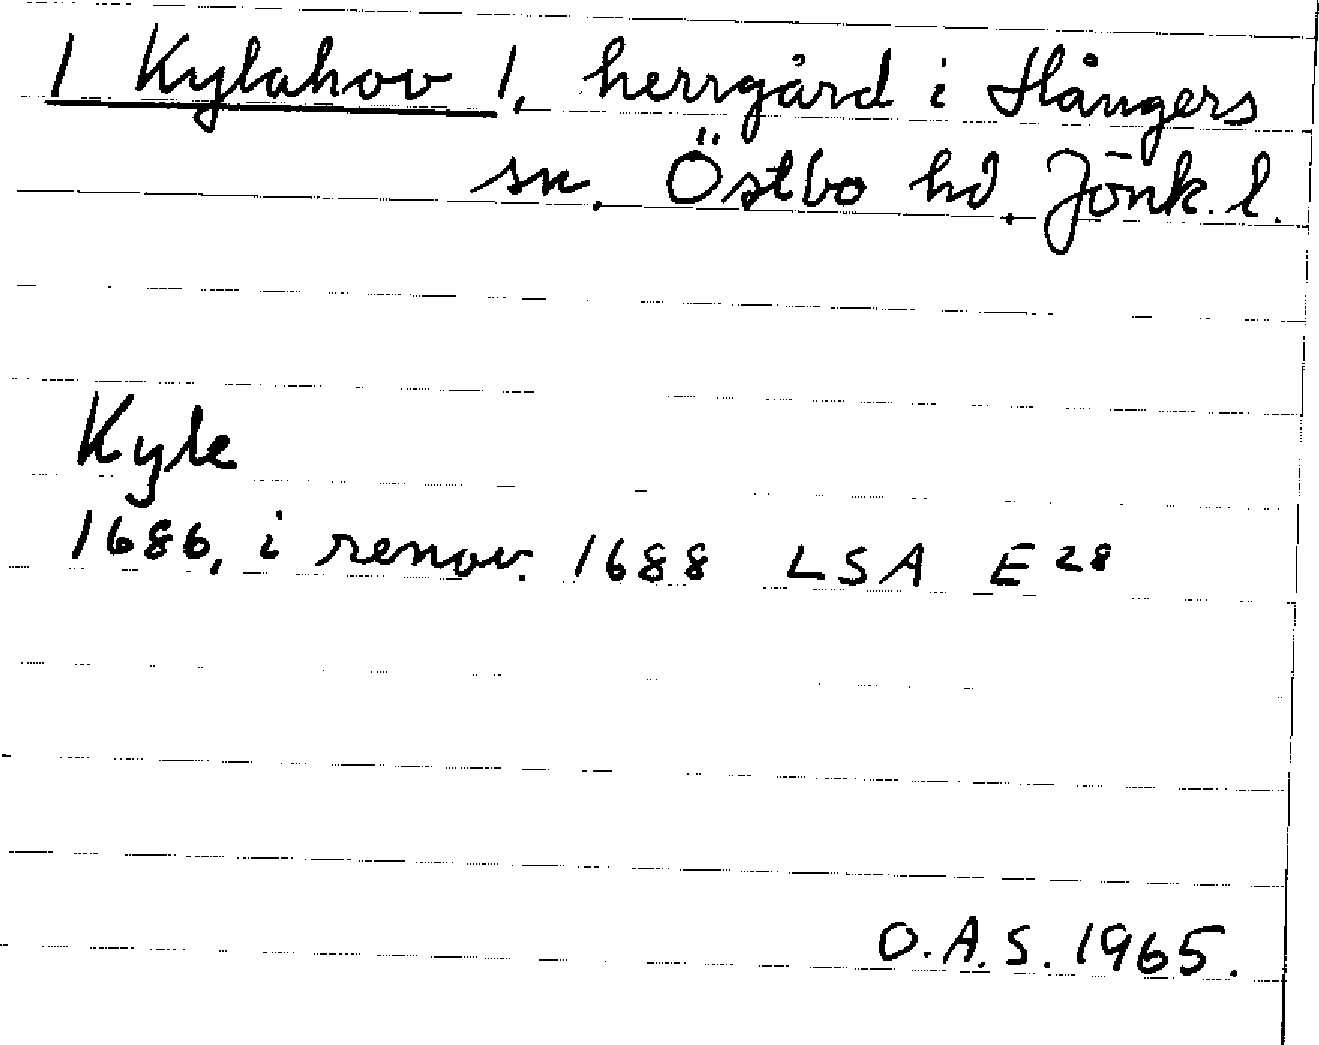 / Kylahov /, herrgård i Hångers
sn. Östbo hd. Jönk. l.
Kyle
1686, i renov. 1688 LSA E 28
O.A.S. 1965.